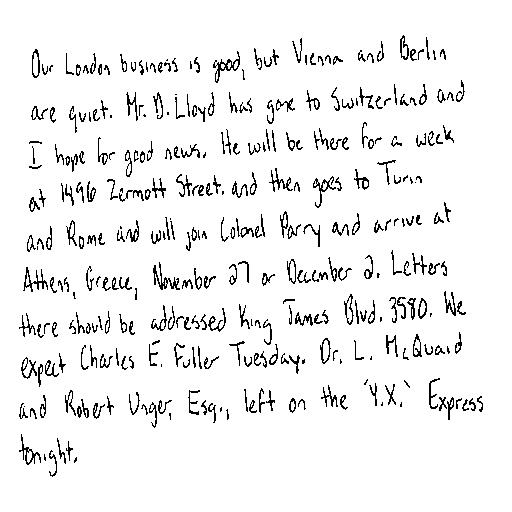 Our London business is good, but Vienna and Berlin
are quiet. Mr. D. Lloyd has gone to Switzerland and
I hope for good news. He will be there for a week
at 1496 Zermott Street. and then goes to Turin
and Rome and will join Colonel Parry and arrive at
Athens, Greece, November 27 or December 2. Letters
there should be addressed King James Blvd. 3580. We
expect Charles E. Fuller Tuesday. Dr. L. McQuaid
and Robert Unger, Esq., left on the 'Y.X.' Express
tonight.